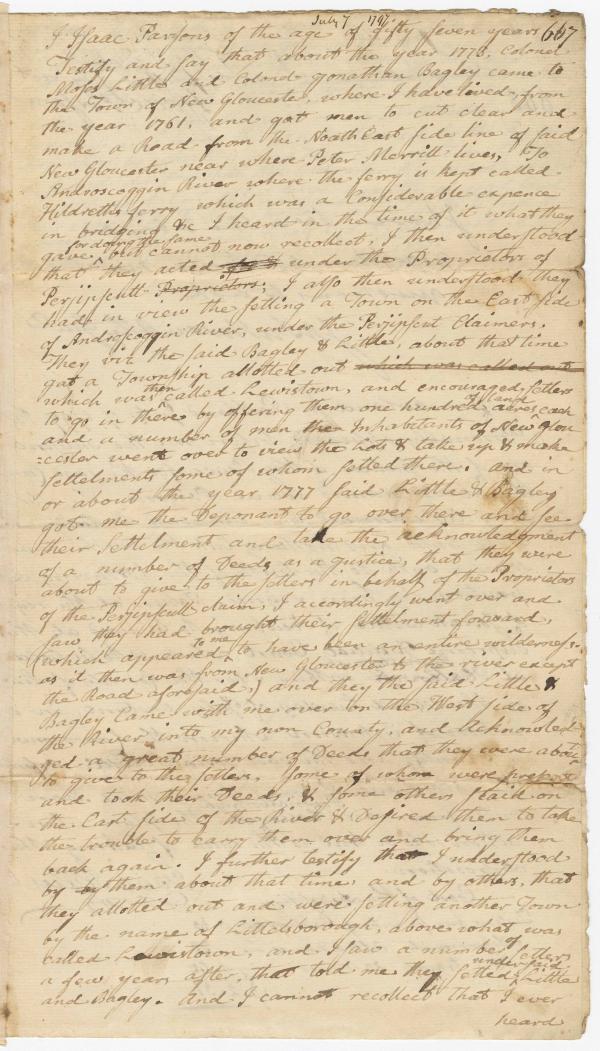 July 7 1797
667
I Isaac Parsons of the age of fifty seven years
Testify and say that about the year 1770, Colonel
Moses Little and Colonel Jonathan Bagley came to
the Town of New Gloucester, where I have lived from
the year 1761, and got men to cut clear and
make a Road from the North East side line of said
New Gloucester near where Peter Merrill lives, To
Androscoggin River where the ferry is kept called
Hildreths ferry which was a Considerable expence
in bridging &c I heard in the time of it what they
for doing the same
gave ^ but cannot now recollect, I then understood
that they acted under the Proprietors of
Perjipscutt Proprietors; I also then understood they
had in view the setting a Town on the East side
of Androscoggin River, under the Perjipscut Claimers.
They viz the said Bagley & Little, about that time
got a Township allotted out which was called out
then
which was ^ called Lewistown, and encouraged setlers
of land
to go in there by offering them one hundred acres ^ each
and a number of men the Inhabitants of New Glou
=cester went over to view the Lots & take up & make
settelments some of whom setled there. and in
or about the year 1777 said Little & Bagley
got me the Deponant to go over there and see
their settelment and take the acknowledgment
of a number of Deeds as a justice, that they were
about to give to the setlers in behalf of the Proprietors
of the Perjipscutt claim, I accordingly went over and
saw they had brought their settelment forward,
to me
(which appeared ^ to have been an entire wilderness
as it then was from New Gloucester to the river except
the Road aforesaid,) and they the said Little &
Bagley Came with me over on the West side of
the River into my own County, and Acknowled
ged a great number of Deeds that they were about
to give to the setlers, some of whom were present
and took their Deeds, & some others staid on
the East side of the River & Desired them to take
the trouble to carry them over and bring them
back again. I further testify that I understood
by by them about that time, and by others, that
they allotted out and were setling another Town
by the name of Littelsborough, above what was
called Lewistown, and I saw a number of setlers
under said
a few years after, that told me they setled ^ Little
and Bagley. And I cannot recollect that I ever
heard